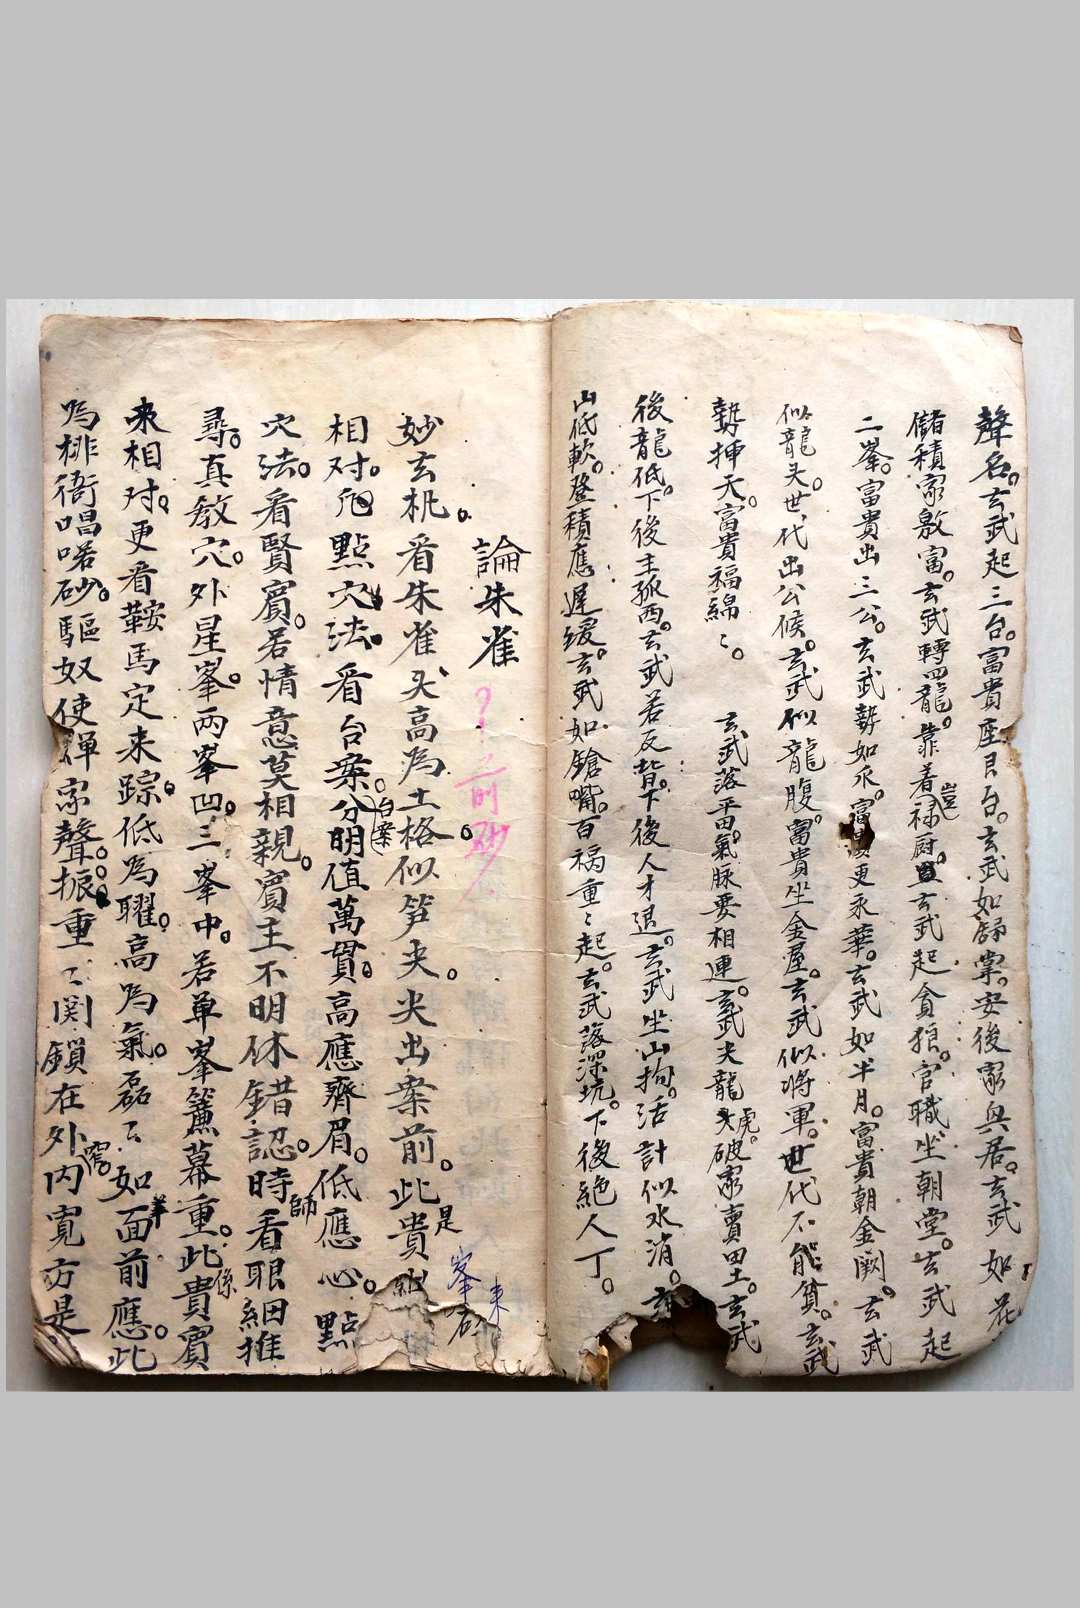 聲名。玄武起三台。富貴座良台。玄武如舒掌。安後家興居。玄武如花
儲積家敫富。玄武轉四龍。靠着禄厨豈。玄武起貪狼。官職坐朝堂。玄武起
二峯。富貴出三公。玄武勢如永。富貴更永華。玄武如半月。富貴朝金闕。玄武
似龍头。世代出公候。玄武似龍腹。富貴坐金屋。玄武似將軍。世代不能貧。玄武
勢揷天。富貴福綿〻。玄武落平田。氣脉要相連。玄武夹龍虎。破家賣田土。玄武
後龍低。下後主孤西。玄武若反背。下後人才退。玄武坐山拘。活計似水消。玄
山低軟。登積應遲缓。玄武如鎗嘴。百祸重〻起。玄武落深坑。下後絶人丁。
論朱雀
前砂
峯 來
砂
妙玄机。看朱雀头高為土格似笋夹。尖出案前。此是貴
相对。凭點穴法。看台案。台案分明值萬貫。高應齊眉。低應心。點
穴法。看賢賓。若情意莫相親。賓主不明休錯認。時師看眼細推
尋。真敎穴。外星峯。兩峯凹。三峯中。若单峯簾幕重。此係貴賓
來相对。更看鞍馬定来踪。低為曜。高為氣。磊〻如羊面前應。此
為排衙唱喏砂。驅奴使婢家聲振。重〻関鎖在外。内窩寬方是。